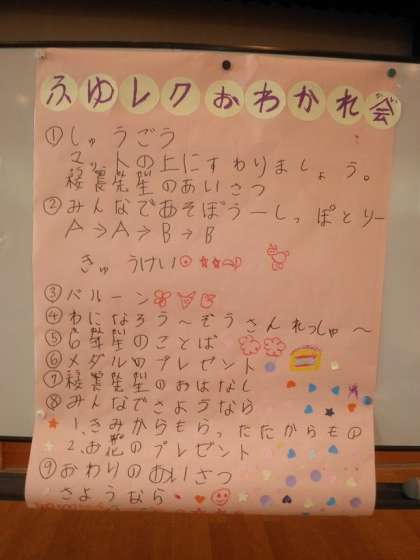 ふゆレクおわかれ会
①しゅうごう
マットの上にすわりましょう。
先生のあいさつ
②みんなであそぼうーしっぽとりー
A→A→B→B
きゅうけい
③バルーン
④わになろう〜ぞうさんれっしゃ〜
⑤6年生のことば
⑥メダルのプレゼント
⑦先生のおはなし
⑧みんなでさようなら
1.きみからもらったたからもの
2.お花のプレゼント
⑨おわりのあいさつ
さようなら